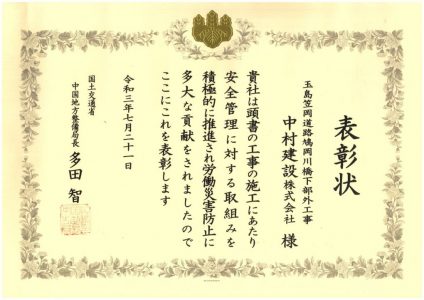 表彰状
玉島笠岡道路鳩岡川橋下部外工事
中村建設株式会社 様
貴社は頭書の工事の施工にあたり
安全管理に対する取組みを
積極的に推進され労働災害防止に
多大な貢献をされましたので
ここにこれを表彰します
令和三年七月二十一日
国土交通省
中国地方整備局長 多田 智